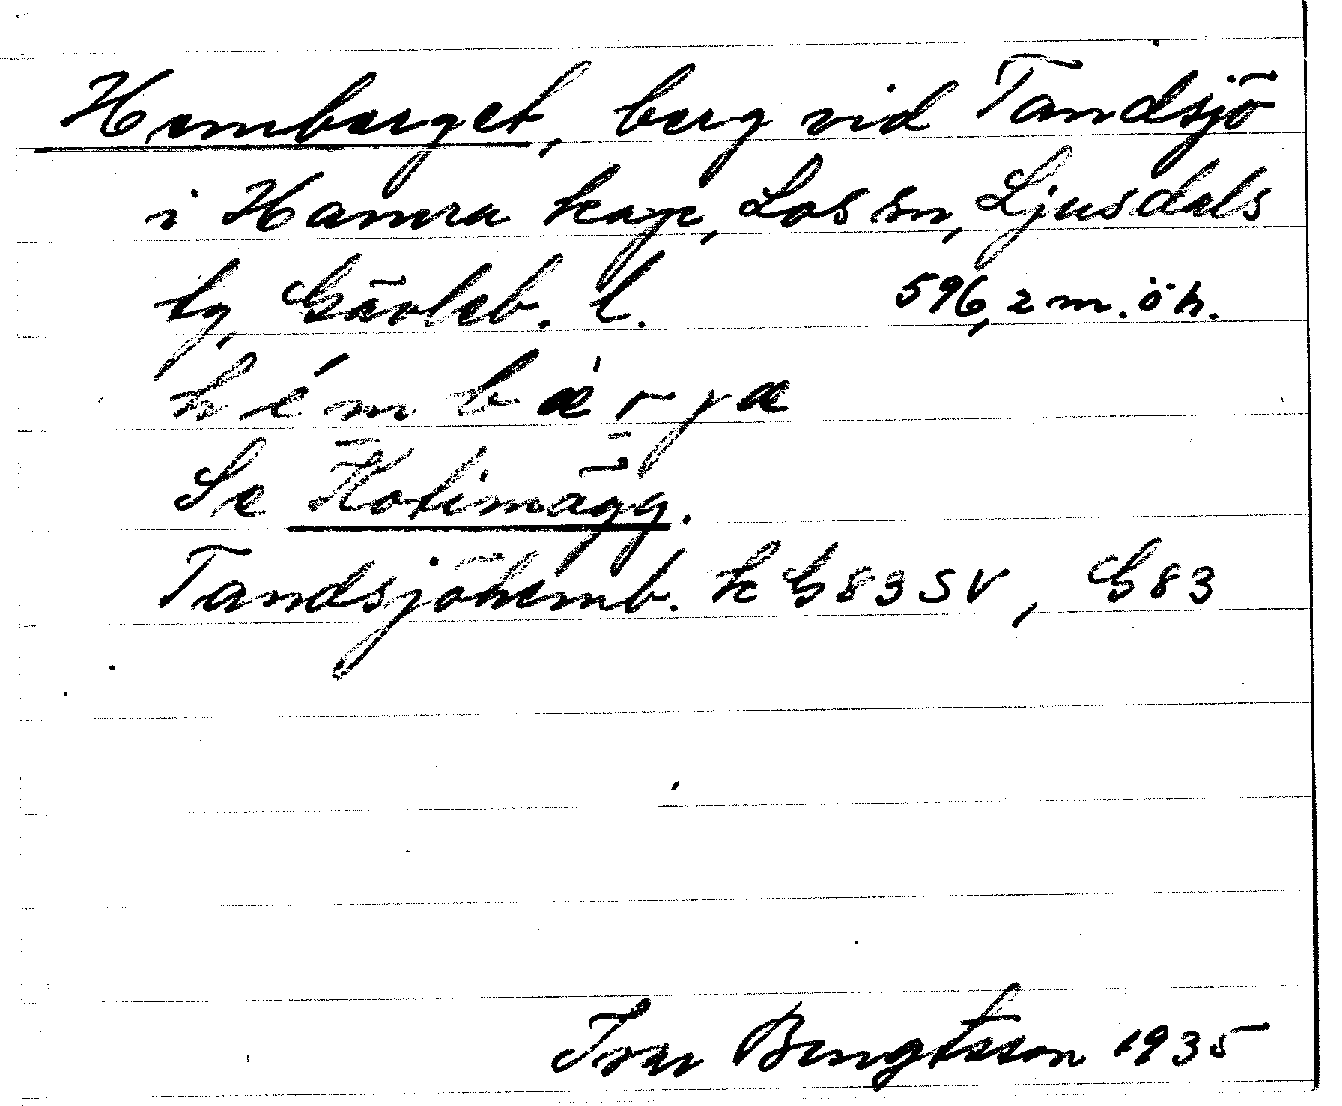 Hemberget, berg vid Tandsjö
i Hamra kap, Los sn, Ljusdals
tg, Gävleb. l. 596,2 m. ö h.
hémbærjæ
Se Kotimägg.
Tandsjöhemb. k G 83 SV, G 83
Ivar Bengtsson 1935